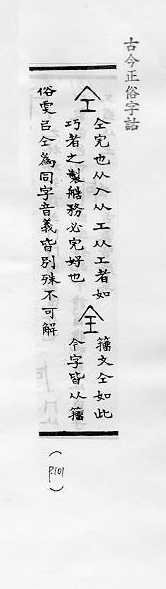 古今正俗字詁
仝
仝完也从入从工从工者如
巧者之製務必完好也
全
籀文仝如此
今字皆从籀
俗㠯仝為同字音義皆別殊不可解
(P.101)